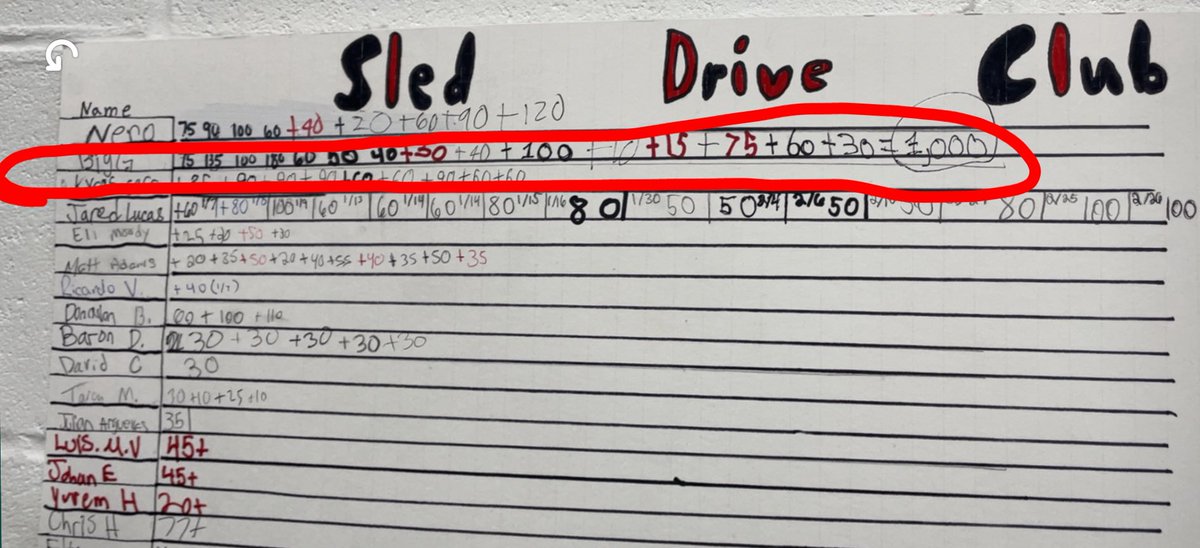 Sled Drive Club
Name
Nero 75 90 100 60 +40 +20 +60 +90 +120
75 135 100 180 60 50 40 +50 +40 + 100 +10 +15 + 75 + 60 + 30 = 1,000
+60 +60
Jared Lucas +60 1/7 +80 1/8 100 1/9 60 1/13 60 1/14 60 1/14 80 1/15 1/16 80 1/30 50 50 2/4 2/6 50 80 2/25 100 2/26 100
Eli Moody +25 +20 +50 +30
Matt Adams + 20 +35 +50 +20 +40 +55 +40 + 35 +50 +35
Ricardo V. +40 (1/7)
Donavan B. 60 + 100 + 110
Baron D. 30 + 30 +30 +30 +30
David C 30
M. 30 +10 +25 +10
Julian 35
Luis. M.V 45+
Johan E 45+
Yurem H 20+
Chris H 77+